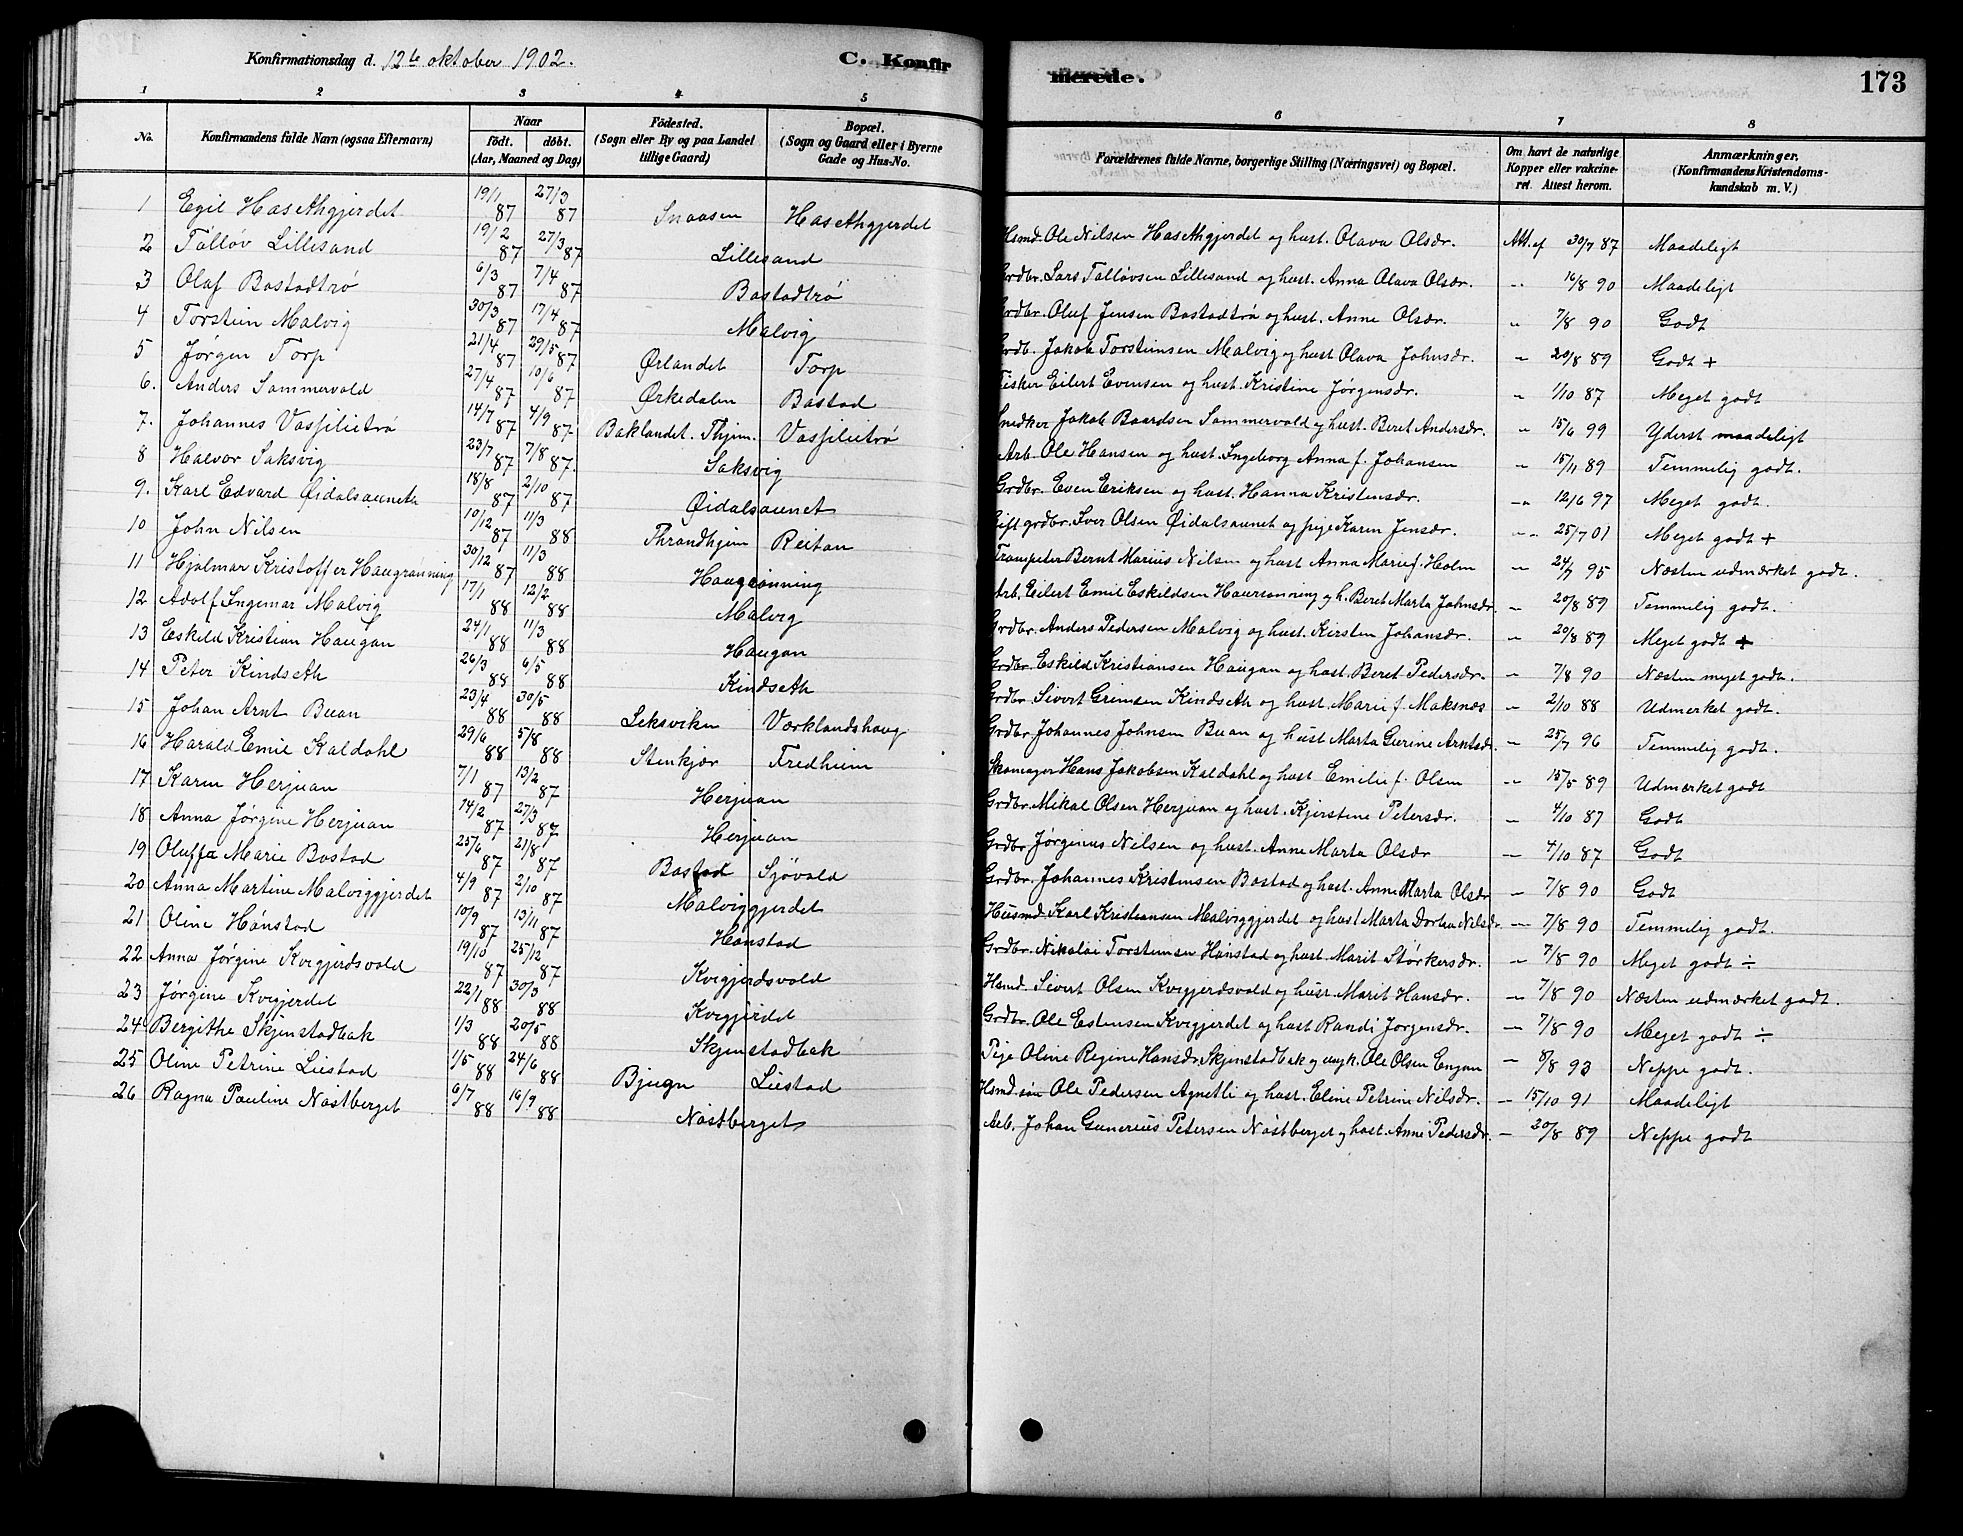 Konfirmationsdag d. 12te oktober 1902.
C. Konfir
merede.
173
1 2 3 4 5 6 7 8
No.
Konfirmandens fulde Navn (ogsaa Efternavn)
Naar
födt. döbt.
(Aar, Maaned og Dag)
Födested.
(Sogn eller By og paa Landet
tillige Gaard)
Bopæl.
(Sogn og Gaard eller i Byerne
Gade og Hus-No.
Forældrenes fulde Navne, borgerlige Stilling (Næringsvei) og Bopæl.
Om havt de naturlige
Kopper eller vakcine-
ret. Attest herom.
Anmærkninger.
(Konfirmandens Kristendoms-
kundskab m. V.)
1 Egil Hasethgjerdet 19/1 87 27/3 87 Snaasen Hasethgjerdet Hsmd. Ole Nilsen Hasethgjerdet og hust. Olava Olsdr. Att. af 30/7 87 Maadeligt
2 Tolløv Lillesand 19/2 87 27/3 87 Lillesand Grdbr. Lars Tolløvsen Lillesand og hust. Anna Olava Olsdr. " 16/8 90 Maadeligt
3 Olaf Bostadtrø 6/3 87 7/4 87 Bostadtrø Grdbr. Oluf Jensen Bostadtrø og hust. Anne Olsdr. " 7/8 90 Godt
4 Torstein Malvig 30/3 87 17/4 87 Malvig Grdb. Jakob Torsteinsen Malvig og hust Olava Johnsdr. " 20/8 89 Godt +
5 Jørgen Torp 21/4 87 29/5 87 Ørlandet Torp Fisker Eilert Evensen og hust. Kristine Jørgensdr. " 1/10 87 Meget godt
6. Anders Sommervold 27/4 87 10/6 87 Ørkedalen Bostad Snedker Jakob Baardsen Sommervold og hust. Beret Andersdr. " 15/6 99 Yderst maadeligt
7. Johannes Vasslietrø 14/7 87 4/9 87 Baklandet. Thjem. Vasslietrø Arb. Ole Hansen og hust. Ingeborg Anna f. Johansen " 15/11 89 Temmelig godt.
8 Halvor Saksvig 23/7 87 7/8 87. Saksvig Grdbr. Even Eriksen og hust. Hanna Kristensdr. " 12/6 97 Meget godt.
9. Karl Edvard Øidalsauneth 18/8 87 2/10 87 Øidalsaunet Gift grdbr. Iver Olsen Øidalsaunet og pige Karen Jensdr. " 25/7 01 Meget godt +
10 John Nilsen 10/12 87 11/3 88 Thrandhjem Reitan Trompeter Bernt Marius Nilsen og hust Anna Marie f. Holm " 24/7 95 Næsten udmærket godt.
11 Hjalmar Kristoffer Haugrønning 30/12 87 11/3 88 Haugrønning Arb. Eilert Emil Eskildsen Haugrønning og h. Beret Marta Johnsdr. " 20/8 89 Temmelig godt.
12 Adolf Ingemar Malvig 17/1 88 12/2 88 Malvig Grdbr. Anders Pedersen Malvig og hust. Kirsten Johansdr. " 20/8 89 Meget godt +
13 Eskild Kristian Haugan 24/1 88 11/3 88 Haugan Grdbr. Eskild Kristiansen Haugan og hust. Beret Pedersdr. " 7/8 90 Næsten meget godt.
14 Peter Kindseth 26/3 88 6/5 88 Kindseth Grdbr Sivert Grimsen Kindseth og hust. Marie f. Maksnæs " 2/10 88 Udmerket godt.
15 Johan Arnt Buan 23/4 88 30/5 88 Leksviken Værklandshaug Grdbr Johannes Johnsen Buan og hust Marta Gurine Arntsdr. " 25/7 96 Temmelig godt.
16 Harald Emil Kaldahl 29/6 88 5/8 88 Stenkjær Fredheim Skomager Hans Jakobsen Kaldahl og hust Emilie f. Olsen " 15/5 89 Udmerket godt
17 Karen Herjuan 7/1 87 13/2 87 Herjuan Grdbr. Mikal Olsen Herjuan og hust. Kjerstine Petersdr. " 4/10 87 Godt
18 Anna Jørgine Herjuan 14/2 87 27/3 87 Herjuan Grdbr Jørginus Nilsen og hust. Anne Marta Olsdr " 4/10 87 Godt
19 Oluffa Marie Bostad 25/6 87 21/8 87 Bostad Sjøvold Grdbr. Johannes Kristensen Bostad og hust. Anne Marta Olsdr " 7/8 90 Godt
20 Anna Martine Malviggjerdet 4/9 87 2/10 87 Malviggjerdet Husmd. Karl Kristiansen Malviggjerdet og hust Marta Dortea Nilsdr. " 7/8 90 Temmelig godt.
21 Oline Hønstad 10/9 87 13/11 87 Hønstad Grdbr. Nikolai Torstensen Hønstad og hust. Marit Størkersdr. " 7/8 90 Meget godt ÷
22 Anna Jørgine Kvigjerdsvold 19/10 87 25/12 87 Kvigjerdsvold Hsmd. Sivert Olsen Kvigjerdsvold og hust. Marit Hansdr. " 7/8 90 Næsten udmærket godt.
23 Jørgine Kvigjerdet 22/1 88 30/3 88 Kvigjerdet Grdbr. Ole Estensen Kvigjerdet og hust Randi Jørgensdr. " 7/8 90 Meget godt ÷
24 Bergithe Skjenstadbak 1/3 88 20/5 88 Skjenstadbak Pige Oline Regine Hansdr. Skjenstadbak og ungk. Ole Olsen Engan " 8/8 93 Neppe godt.
25 Oline Petrine Liestad 1/5 88 24/6 88 Bjugn Liestad Hsmd.søn Ole Pedersen Agnetli og hust. Eline Petrine Nilsdr. " 15/10 91 Maadeligt
26 Ragna Pauline Nøstberget 6/7 88 16/9 88 Nøstberget Arb. Johan Gunerius Petersen Nøstberget og hust. Anne Pedersdr. " 20/8 89 Neppe godt